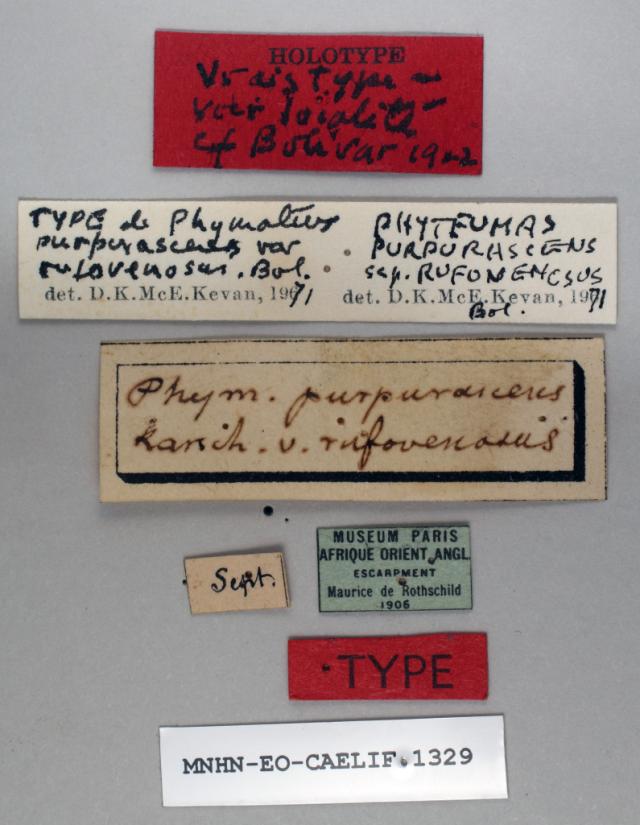 HOLOTYPE
Vrais type -
voir
cf Bolivar 1922
TYPE de Phymateus
purpurascens var
rufovenosus. Bol.
det. D.K.McE.Kevan, 1971
PHYTEUMAS
PURPURASCENS
ssp. RUFOVENOSUS
det. D.K.McE.Kevan, 1971
Bol.
Phym. purpurascens
Karsch. v. rufovenosus
Sept.
MUSEUM PARIS
AFRIQUE ORIENT. ANGL.
ESCARPMENT
Maurice de Rothschild
1906
TYPE
MNHN-EO-CAELIF.1329